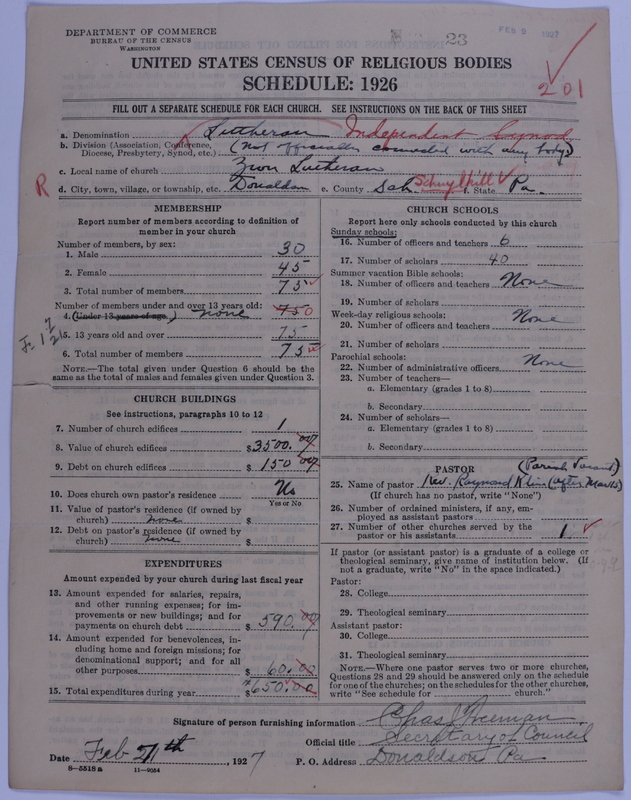 DEPARTMENT OF COMMERCE
BUREAU OF THE CENSUS
WASHINGTON
23
FEB 9 1927
UNITED STATES CENSUS OF RELIGIOUS BODIES
SCHEDULE: 1926
201
FILL OUT A SEPARATE SCHEDULE FOR EACH CHURCH. SEE INSTRUCTIONS ON THE BACK OF THIS SHEET
a. Denomination Lutheran Independent Synod
b. Division (Association, Conference, Diocese, Presbytery, Synod, etc.) (Not officially connected with any body)
c. Local name of church Zion Lutheran
R
d. City, town, village, or township, etc. Donaldson e. County Sch Schuylkill f. State Pa.
MEMBERSHIP
Report number of members according to definition of
member in your church
Number of members, by sex:
1. Male 30
2. Female 45
3. Total number of members 75
Number of members under and over 13 years old:
4. (Under 13 years of age) none 750
5. 13 years old and over 75
6. Total number of members 75
NOTE.—The total given under Question 6 should be
the same as the total of males and females given under Question 3.
CHURCH BUILDINGS
See instructions, paragraphs 10 to 12
7. Number of church edifices 1
8. Value of church edifices $3500.00
9. Debt on church edifices $150.00
10. Does church own pastor's residence No
Yes or No
11. Value of pastor's residence (if owned by
church) none $
12. Debt on pastor's residence (if owned by
church) none $
EXPENDITURES
Amount expended by your church during last fiscal year
13. Amount expended for salaries, repairs,
and other running expenses; for im-
provements or new buildings; and for
payments on church debt $590.00
14. Amount expended for benevolences, in-
cluding home and foreign missions; for
denominational support; and for all
other purposes $60.00
15. Total expenditures during year $650.00
CHURCH SCHOOLS
Report here only schools conducted by this church
Sunday schools:
16. Number of officers and teachers 6
17. Number of scholars 40
Summer vacation Bible schools:
18. Number of officers and teachers None
19. Number of scholars
Week-day religious schools: None
20. Number of officers and teachers
21. Number of scholars
Parochial schools: None
22. Number of administrative officers
23. Number of teachers—
a. Elementary (grades 1 to 8)
b. Secondary
24. Number of scholars—
a. Elementary (grades 1 to 8)
b. Secondary
PASTOR (Parish Vacant)
25. Name of pastor Rev. Raymond Kline (after March)
(If church has no pastor, write "None")
26. Number of ordained ministers, if any, em-
ployed as assistant pastors
27. Number of other churches served by the
pastor or his assistants 1
If pastor (or assistant pastor) is a graduate of a college or
theological seminary, give name of institution below. (If
not a graduate, write "No" in the space indicated.)
Pastor:
28. College
29. Theological seminary
Assistant pastor:
30. College
31. Theological seminary
NOTE.—Where one pastor serves two or more churches,
Questions 28 and 29 should be answered only on the schedule
for one of the churches; on the schedules for the other churches,
write "See schedule for church."
Signature of person furnishing information Chas Freeman
Official title Secretary of Council
Date Feb 7th, 1927 P. O. Address Donaldson Pa
8—5518a 11—9054